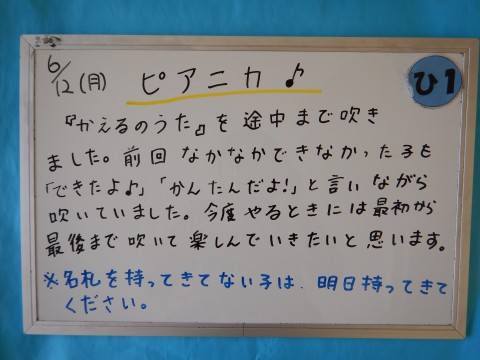 6/12(月) ピアニカ♪ ひ1
『かえるのうた』を途中まで吹き
ました。前回なかなかできなかった子も
「できたよ♪」「かんたんだよ!」と言いながら
吹いていました。今度やるときには最初から
最後まで吹いて楽しんでいきたいと思います。
※名札を持ってきてない子は、明日持ってきて
ください。